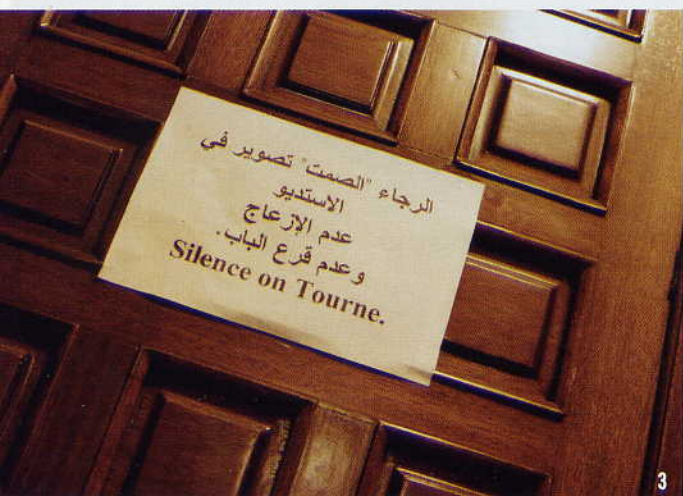 الرجاء "الصمت" تصوير في
الاستديو
عدم الإزعاج
وعدم قرع الباب.
Silence on Tourne.
3